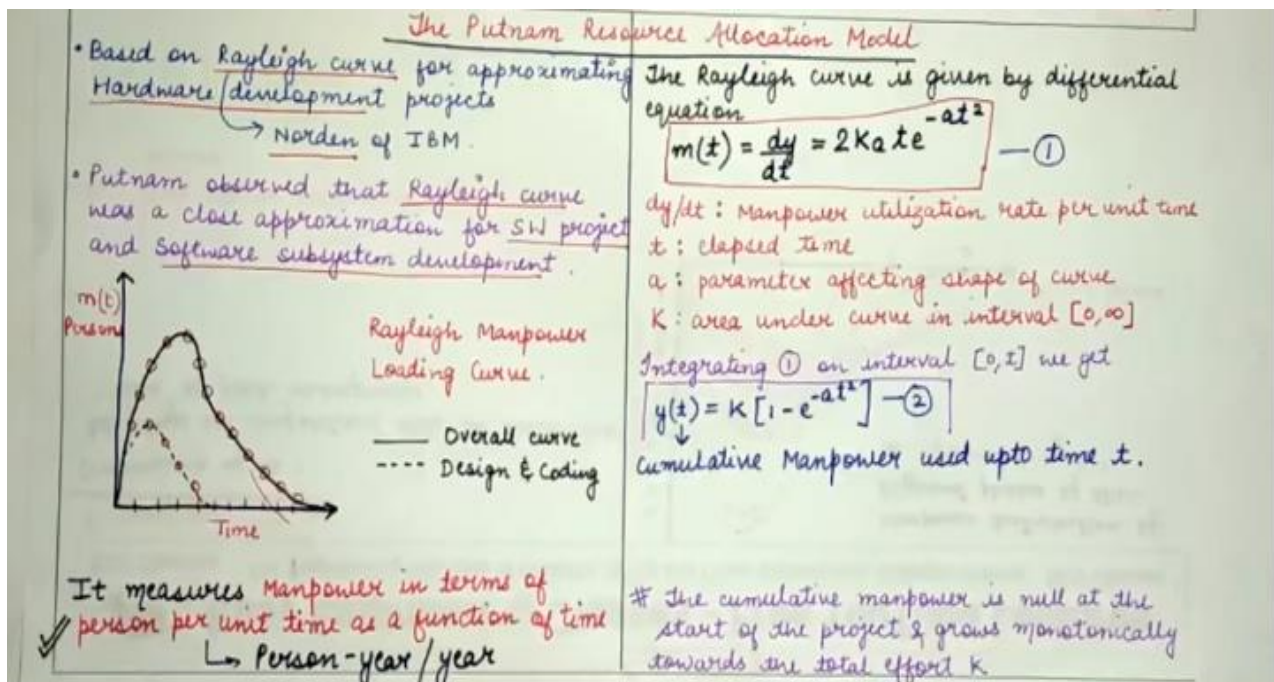 The Putnam Resource Allocation Model
• Based on Rayleigh curve for approximating
Hardware/development projects
→ Norden of IBM.
• Putnam observed that Rayleigh curve
was a close approximation for SW project
and Software subsystem development.
m(t)
Person
Time
Rayleigh Manpower
Loading Curve.
—— Overall curve
---- Design & Coding
It measures Manpower in terms of
person per unit time as a function of time
↳ Person-year/year
The Rayleigh curve is given by differential
equation
m(t) = dy/dt = 2Kate^-at² — ①
dy/dt : Manpower utilization rate per unit time
t : elapsed time
a : parameter affecting shape of curve
K : area under curve in interval [0,∞]
Integrating ① on interval [0,t] we get
y(t) = K [1 - e^-at²] — ②
Cumulative Manpower used upto time t.
# The cumulative manpower is null at the
start of the project & grows monotonically
towards the total effort K